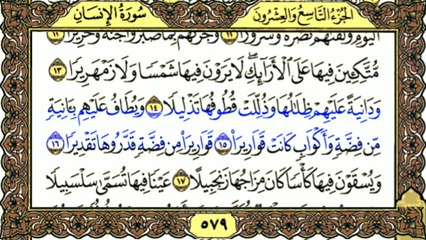 الجُزْءُ التَّاسِعُ وَالعِشْرُونَ
سُورَةُ الإِنسَانِ
اليَوْمِ وَلَقَّاهُمْ نَضْرَةً وَسُرُورًا ١١ وَجَزَاهُم بِمَا صَبَرُوا جَنَّةً وَحَرِيرًا ١٢
مُّتَّكِئِينَ فِيهَا عَلَى الْأَرَائِكِ لَا يَرَوْنَ فِيهَا شَمْسًا وَلَا زَمْهَرِيرًا ١٣
وَدَانِيَةً عَلَيْهِمْ ظِلَالُهَا وَذُلِّلَتْ قُطُوفُهَا تَذْلِيلًا ١٤ وَيُطَافُ عَلَيْهِم بِآنِيَةٍ
مِّن فِضَّةٍ وَأَكْوَابٍ كَانَتْ قَوَارِيرَا ١٥ قَوَارِيرَا مِن فِضَّةٍ قَدَّرُوهَا تَقْدِيرًا ١٦
وَيُسْقَوْنَ فِيهَا كَأْسًا كَانَ مِزَاجُهَا زَنجَبِيلًا ١٧ عَيْنًا فِيهَا تُسَمَّى سَلْسَبِيلًا
٥٧٩